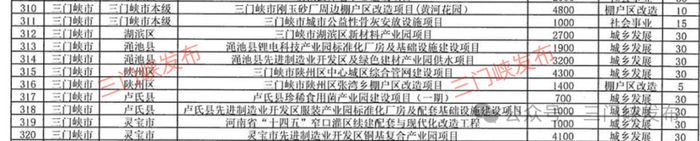 310 三门峡市 三门峡市本级 三门峡市刚玉砂厂周边棚户区改造项目(黄河花园) 4800 棚户区改造 10
311 三门峡市 三门峡市本级 三门峡市城市公益性骨灰安放设施项目 1000 社会事业 15
312 三门峡市 湖滨区 三门峡市湖滨区新材料产业园项目 2700 城乡发展 30
313 三门峡市 渑池县 渑池县锂电科技产业园标准化厂房及基础设施建设项目 1900 城乡发展 30
314 三门峡市 渑池县 渑池县先进制造业开发区及绿色建材产业园供水项目 3200 城乡发展 30
315 三门峡市 陕州区 三门峡市陕州区中心城区综合管网建设项目 4300 城乡发展 30
316 三门峡市 陕州区 三门峡市陕州区张湾乡棚户区改造项目 1400 棚户区改造 5
317 三门峡市 卢氏县 卢氏县珍稀食用菌产业园建设项目(一期) 700 城乡发展 30
318 三门峡市 卢氏县 卢氏县先进制造业开发区服装产业园标准化厂房及配套基础设施建设项目 城乡发展 30
319 三门峡市 灵宝市 河南省“十四五”窄口灌区续建配套与现代化改造工程 1000 城乡发展 30
320 三门峡市 灵宝市 灵宝市先进制造业开发区铜基复合产业园项目 4100 城乡发展 30
三门峡发布
三门峡发布
公众号 三门峡发布